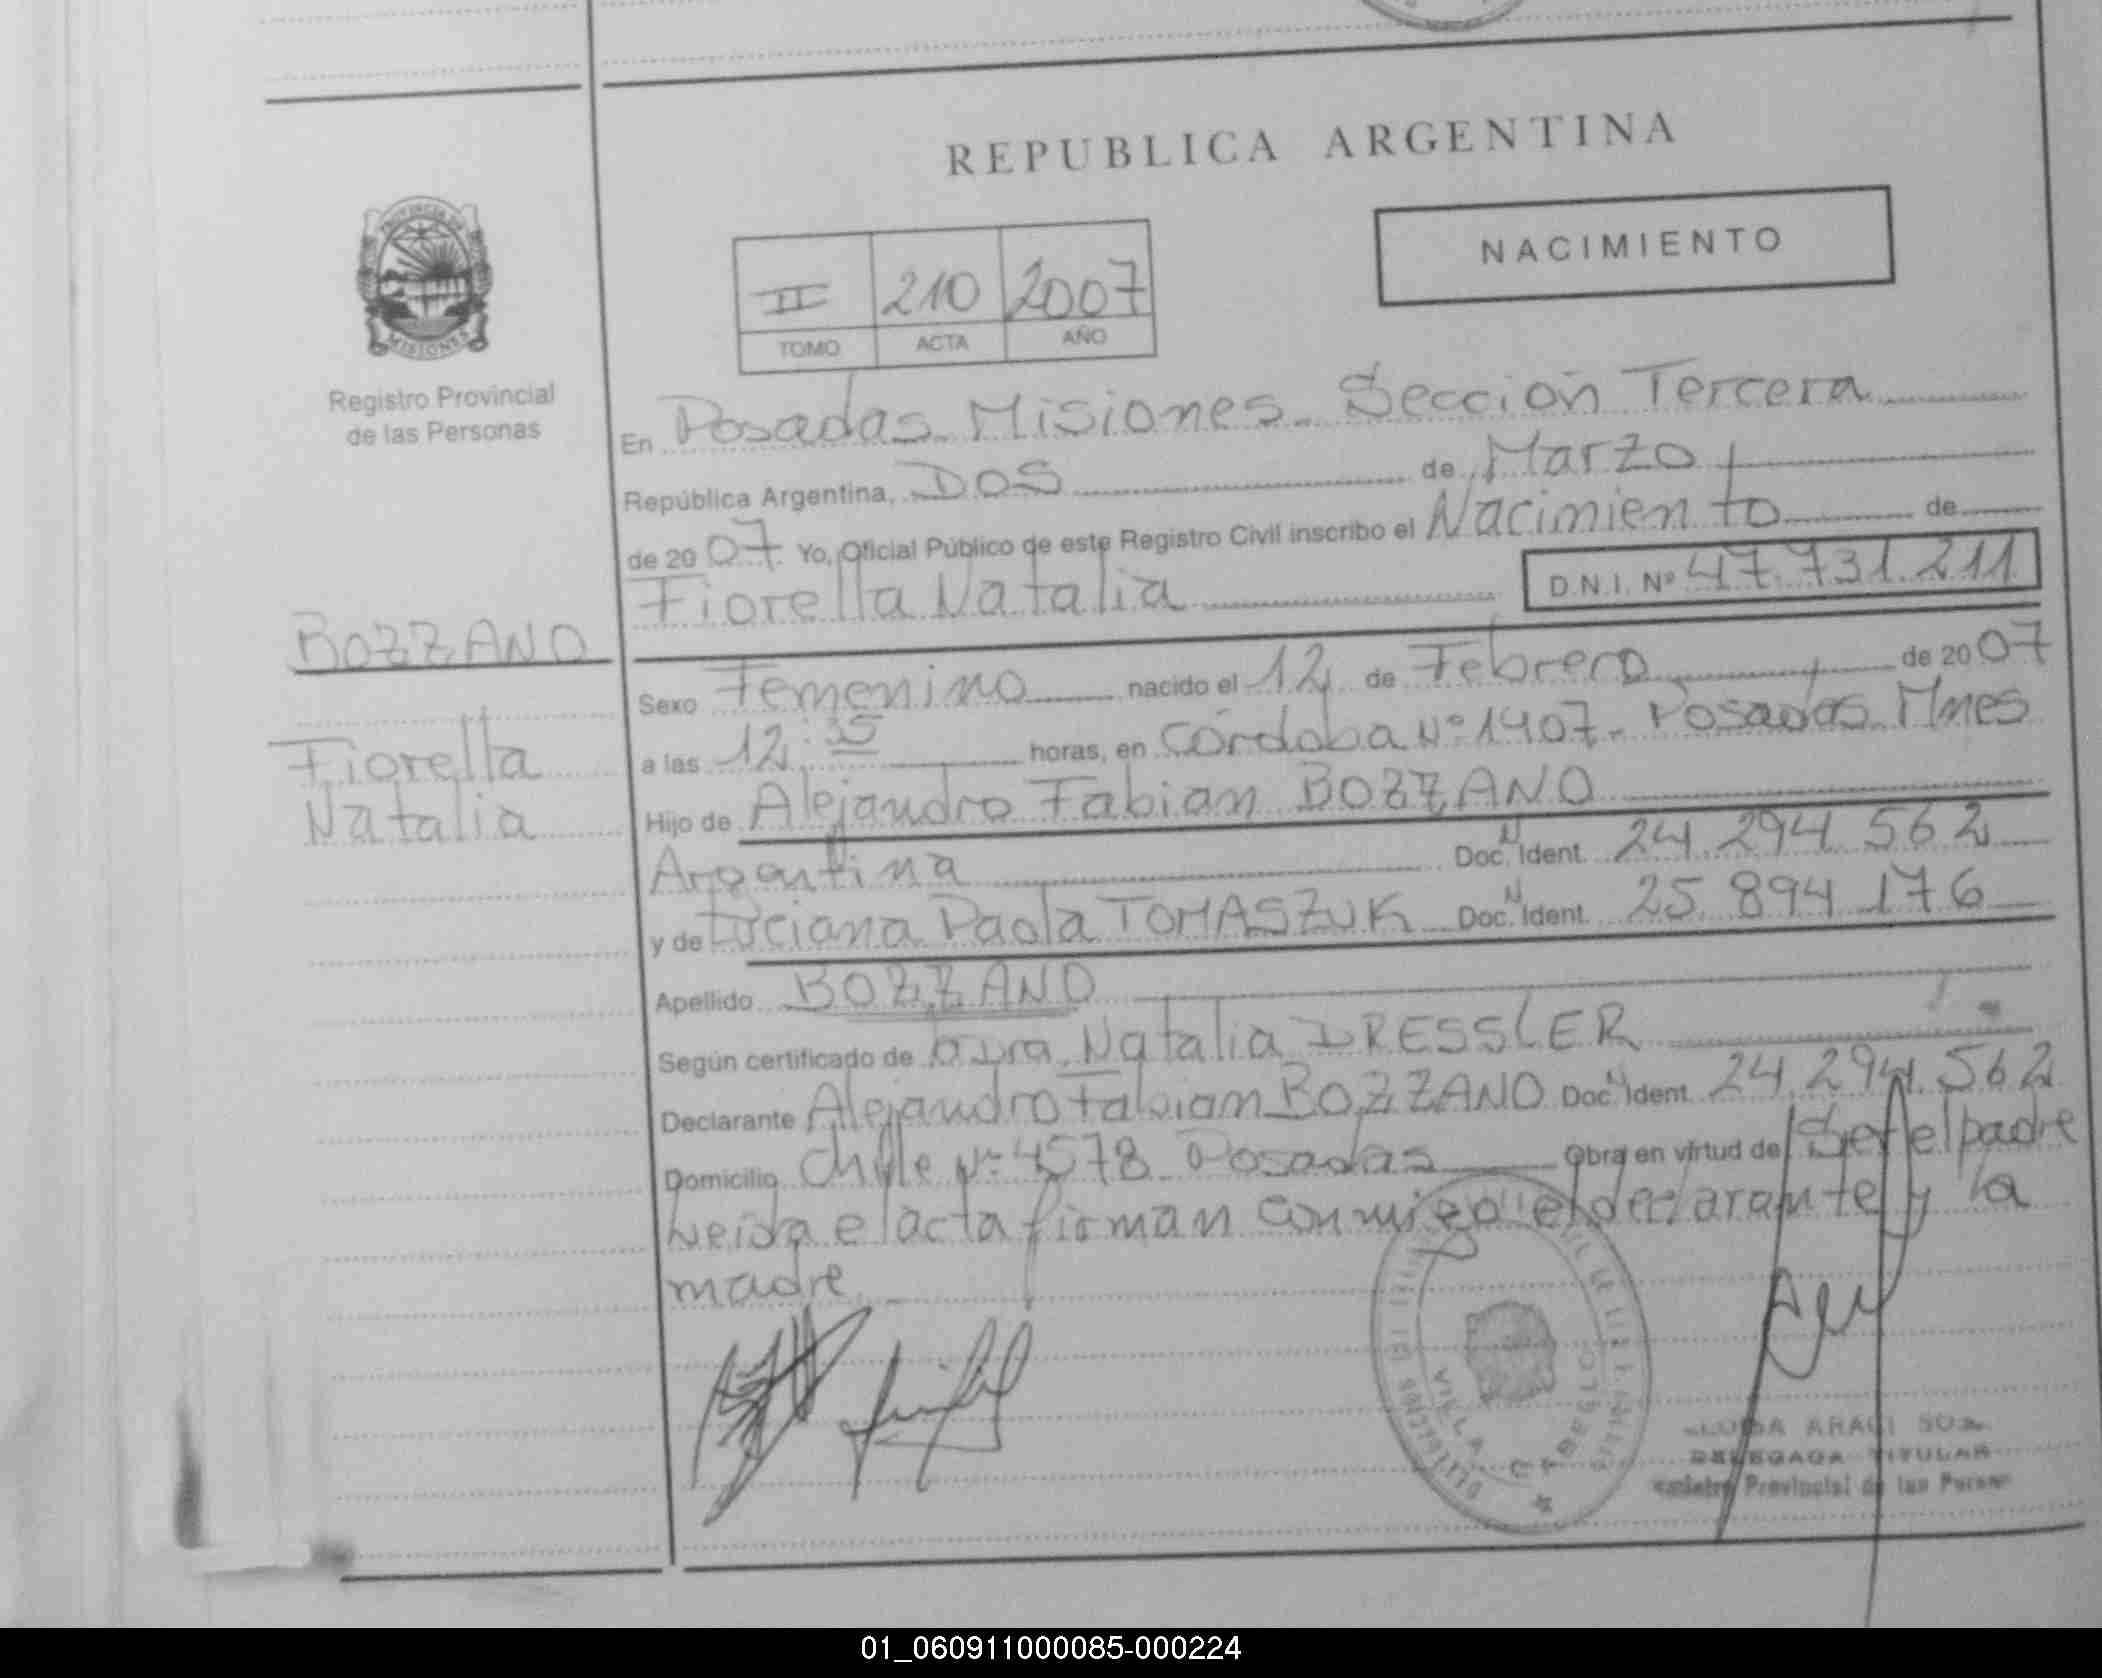 REPUBLICA ARGENTINA
NACIMIENTO
II 210 2007
TOMO ACTA AÑO
PROVINCIA DE
MISIONES
Registro Provincial
de las Personas
BOZZANO
Fiorella
Natalia
En Posadas Misiones. Sección Tercera
República Argentina, DOS de Marzo
de 2007 Yo, Oficial Público de este Registro Civil inscribo el Nacimiento de
Fiorella Natalia D.N.I. Nº 47.731.211
Sexo Femenino nacido el 12 de Febrero de 2007
a las 12:35 horas, en Córdoba Nº 1407. Posadas Mnes
Hijo de Alejandro Fabian BOZZANO
Argentina Doc. N Ident. 24.294.562
y de Luciana Paola TOMASZUK Doc. N Ident. 25.894.176
Apellido BOZZANO
Según certificado de Dra. Natalia DRESSLER
Declarante Alejandro Fabian BOZZANO Doc. N Ident. 24.294.562
Domicilio Chile Nº 4578 Posadas Obra en virtud de Ser el padre
Leida el acta firman conmigo el declarante y la
madre
VILLA CABELLO
DELEGADA TITULAR
Provincial de las
01_060911000085-000224